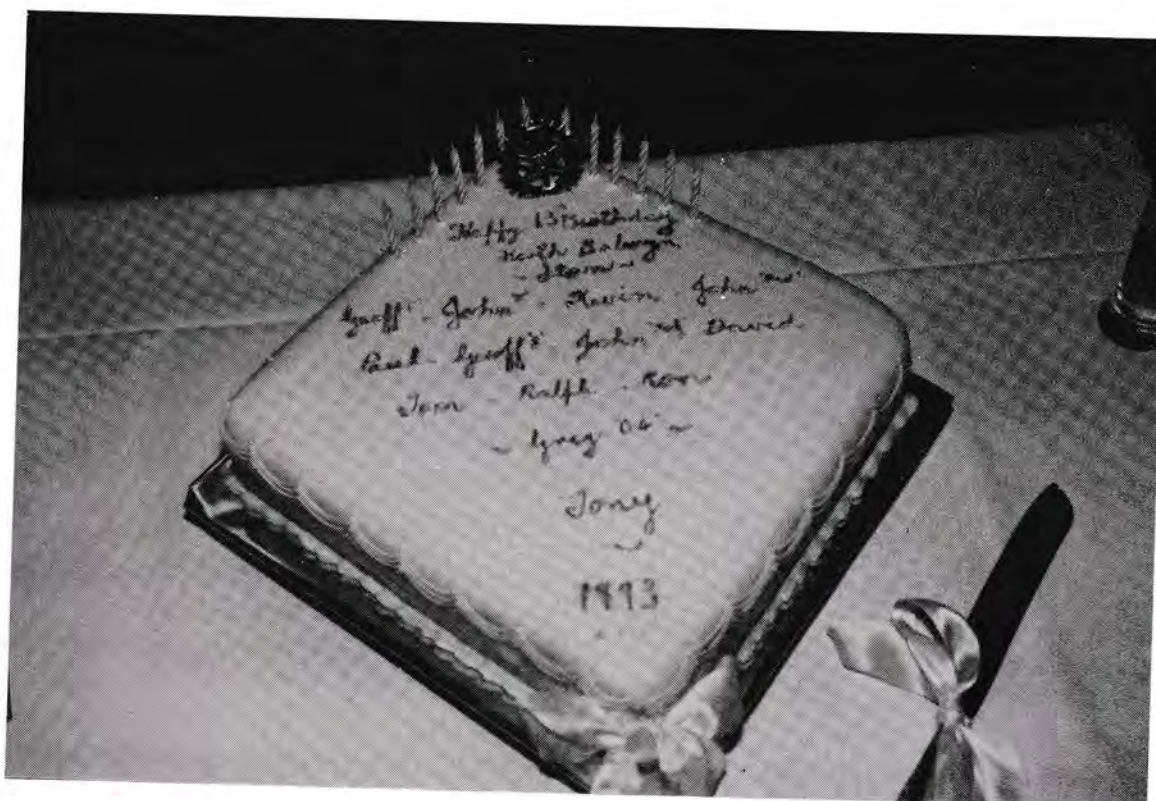 Happy 13th Birthday
North Balwyn
~ Storm ~
Geoff - John - Kevin - John
Paul - Geoff - John David
Tom - Ralph - Ross
~ Greg ~
Tony
~
1993